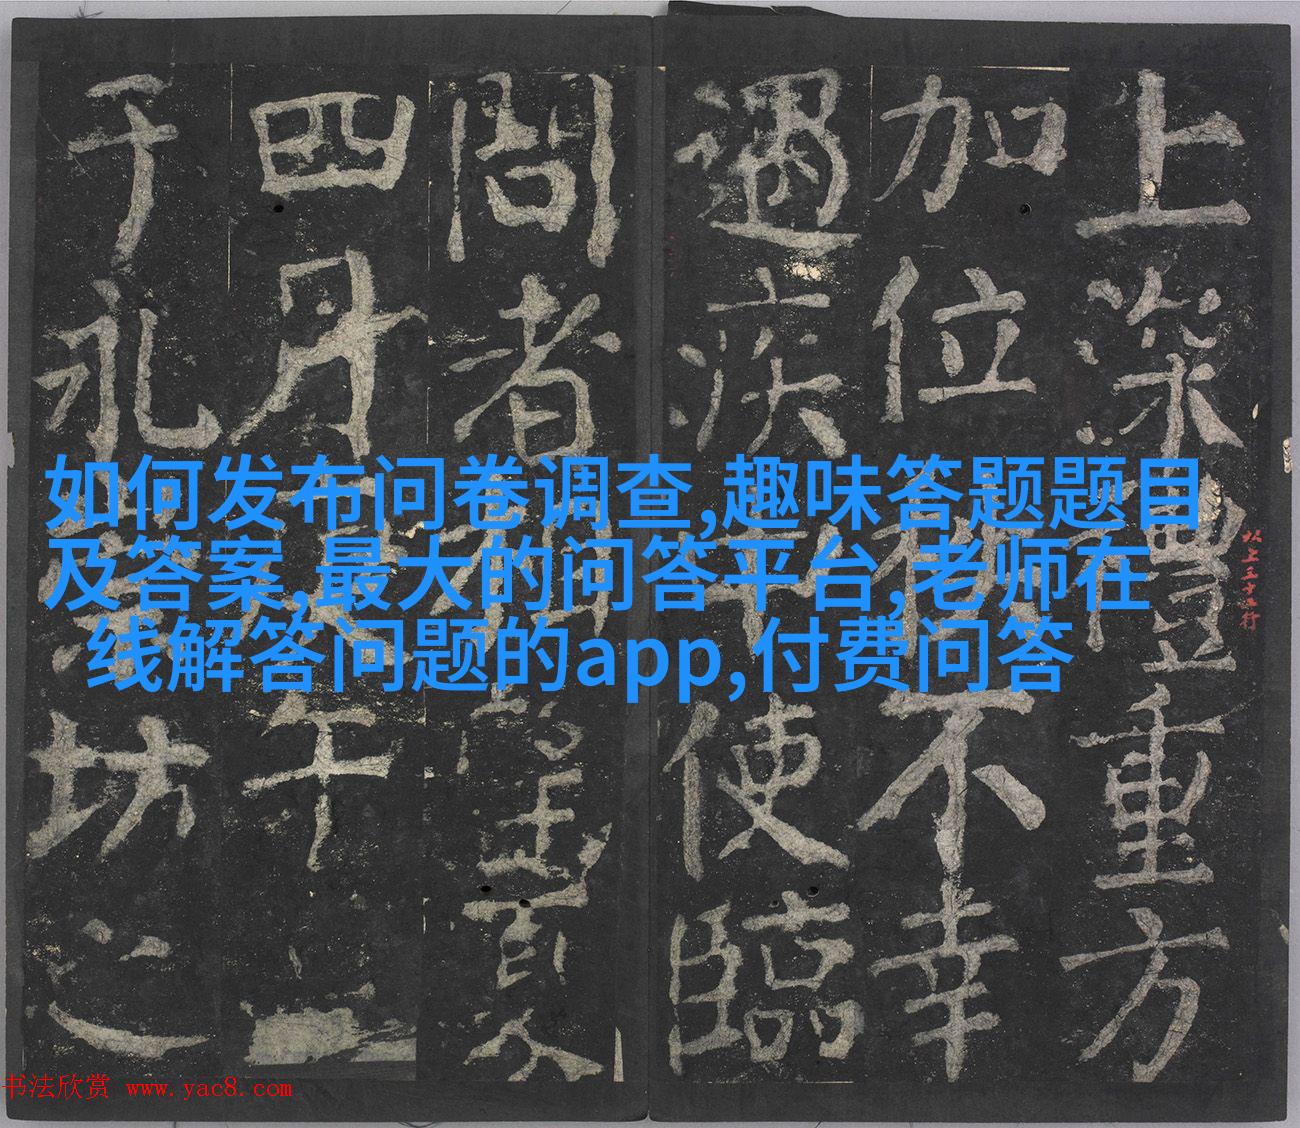 上深禮重方
加位不幸
遇疾使臨
問者望夏
四月午
于永坊之
以上五十二行
如何发布问卷调查,趣味答题题目
及答案,最大的问答平台,老师在
线解答问题的app,付费问答
书法欣赏 www.yac8.com